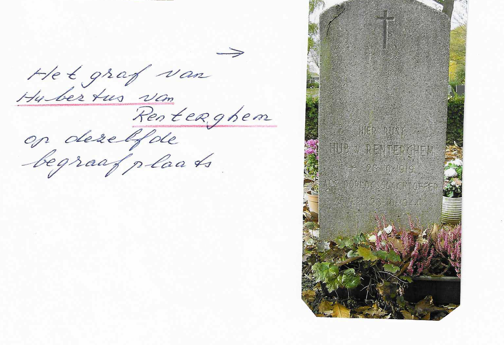 Het graf van
Hubertus van
Renterghem
op dezelfde
begraafplaats
HIER RUST
HUB. V. RENTERGHEM